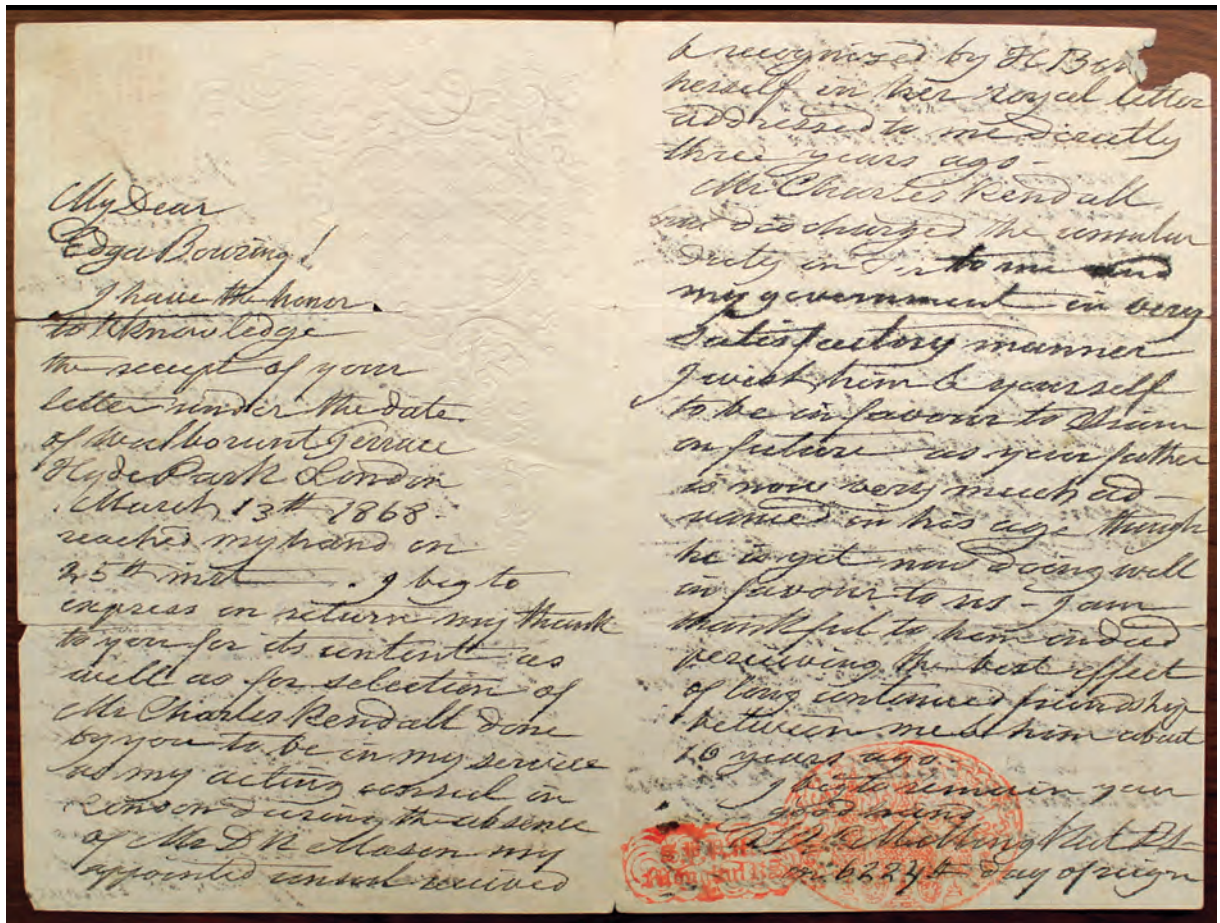 My Dear
Edgar Bowring!
I have the honor
to Aknowledge
the receipt of your
letter under the date
of Terrace
Hyde Park London
March 13th 1868.
reached my hand on
25th inst. I beg to
express in return my thank
to you for its content as
well as for selection of
Mr Charles Rendall done
by you to be in my service
as my acting consul in
London during the absence
of Mr D K Mason my
appointed consul received
& recognized by H B
herself in her royal letter
addressed to me directly
three years ago -
Mr Charles Rendall
discharged the consular
duty in to me and
my government in very
Satisfactory manner
I wish him & yourself
to be in favour to Siam
on future as your father
is now very much ad-
vanced in his age though
he is yet now doing well
in favour to us - I am
thankful to him indeed
perceiving the best effect
of long continued friendship
between me & him about
16 years ago.
I beg to remain your
good
Mongkut Rx
in 6224th day of reign
S.P.P.M.
Mongkut R.S.